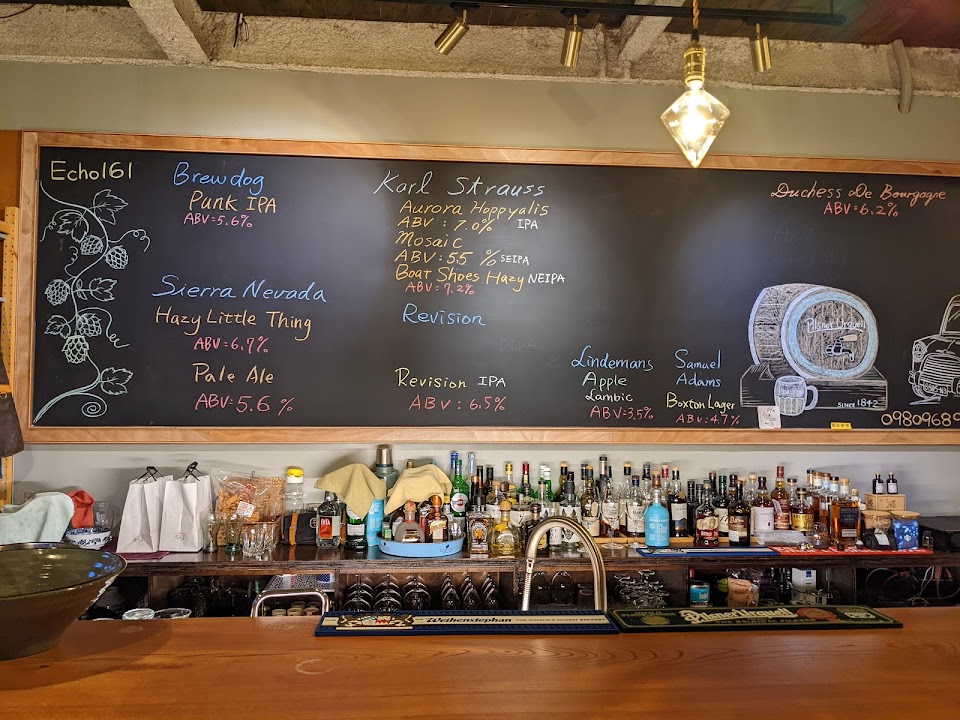 Echo161
Brewdog
Punk IPA
ABV=5.6%
Sierra Nevada
Hazy Little Thing
ABV=6.7%
Pale Ale
ABV=5.6%
Karl Strauss
Aurora Hoppyalis
ABV: 7.0% IPA
Mosaic
ABV:5.5 % SEIPA
Boat Shoes Hazy NEIPA
ABV=7.2%
Revision
Revision IPA
ABV: 6.5%
Lindemans
Apple
Lambic
ABV=3.5%
Samuel
Adams
Boxton Lager
ABV=4.7%
Duchess De Bourgogne
ABV=6.2%
Pilsner Urquell
SINCE 1842
0980968
Weihenstephan